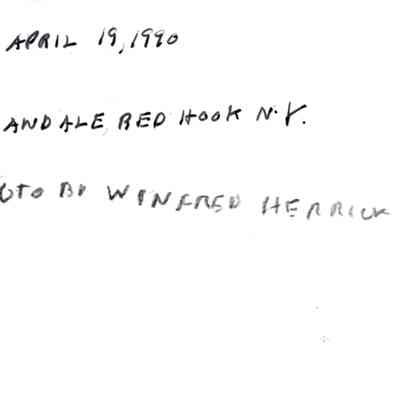 APRIL 19, 1990
ANDALE RED HOOK N.Y.
OTO BY WINFRED HERRICK